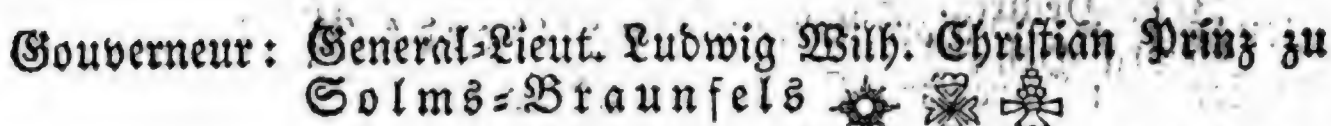 Gouverneur: General-Lieut. Ludwig Wilh. Christian Prinz zu
Solms-Braunfels